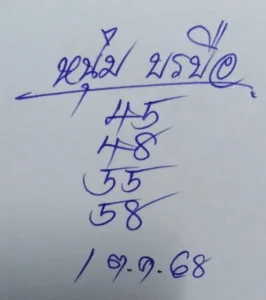 หนุ่ม บรบือ
45
48
55
58
1 ต.ค.68